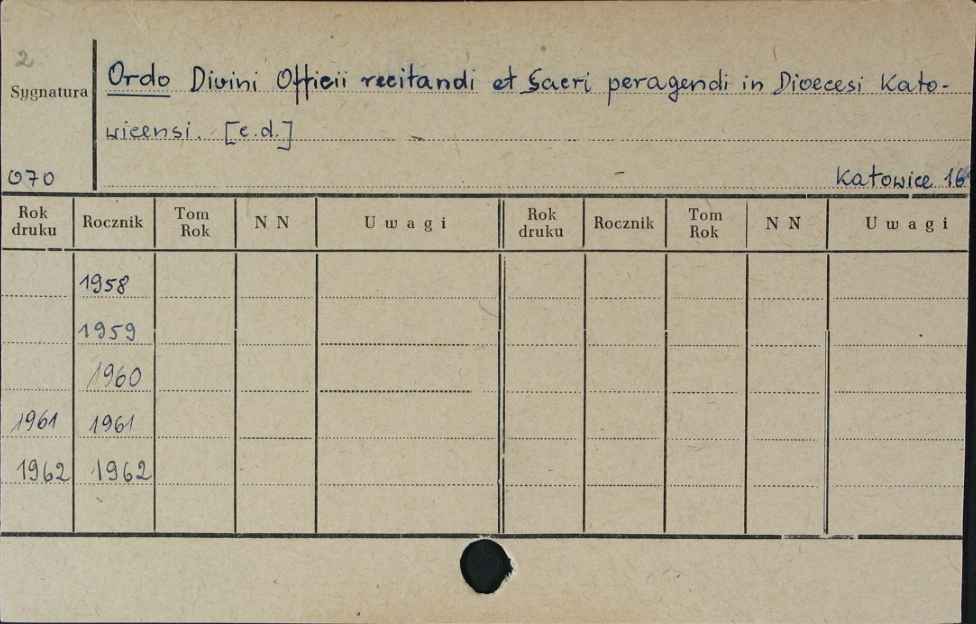 2
Sygnatura
Ordo Divini Officii recitandi et Sacri peragendi in Dioecesi Kato-
wicensi. [c.d.]
070
Katowice 16°
Rok druku Rocznik Tom Rok N N Uwagi Rok druku Rocznik Tom Rok N N Uwagi
1958
1959
1960
1961 1961
1962 1962